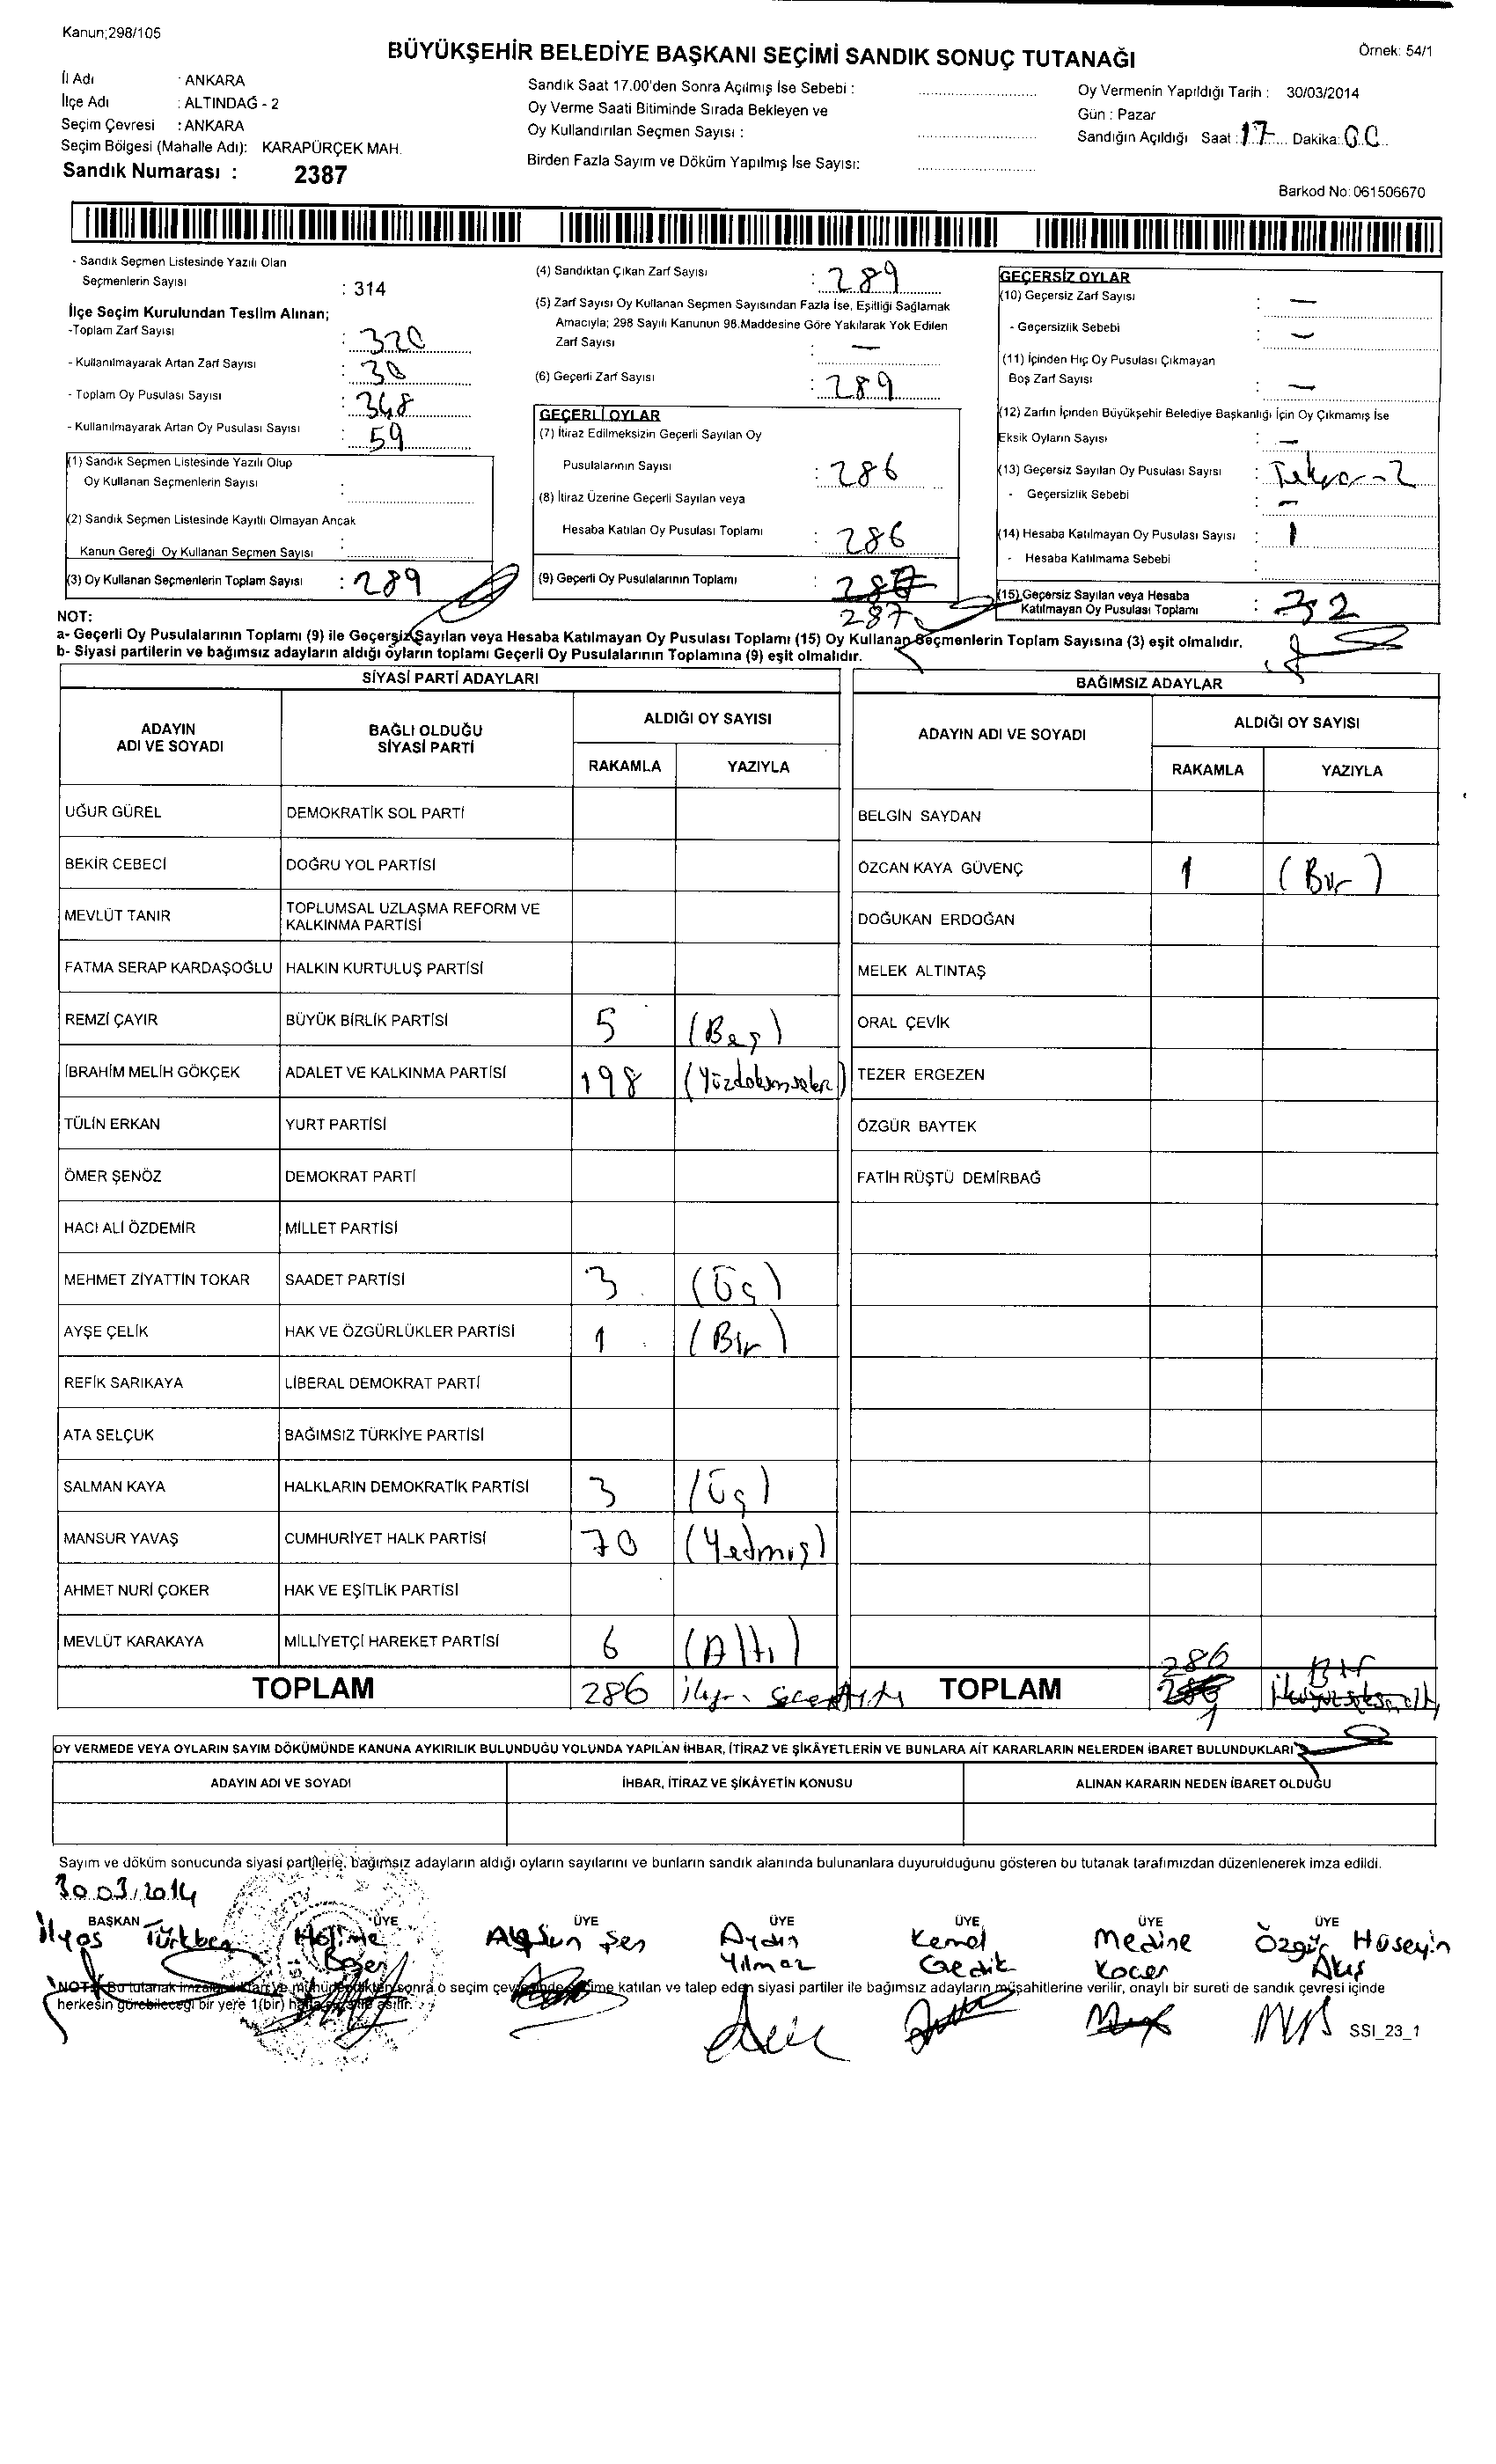 Kanun;298/105
BÜYÜKŞEHİR BELEDİYE BAŞKANI SEÇİMİ SANDIK SONUÇ TUTANAĞI
Örnek: 54/1
İl Adı : ANKARA
İlçe Adı : ALTINDAĞ - 2
Seçim Çevresi : ANKARA
Seçim Bölgesi (Mahalle Adı): KARAPÜRÇEK MAH.
Sandık Numarası : 2387
Sandık Saat 17.00'den Sonra Açılmış İse Sebebi :
Oy Verme Saati Bitiminde Sırada Bekleyen ve
Oy Kullandırılan Seçmen Sayısı :
Birden Fazla Sayım ve Döküm Yapılmış İse Sayısı:
Oy Vermenin Yapıldığı Tarih : 30/03/2014
Gün : Pazar
Sandığın Açıldığı Saat : 17 Dakika: 00
Barkod No: 061506670
- Sandık Seçmen Listesinde Yazılı Olan
Seçmenlerin Sayısı : 314
İlçe Seçim Kurulundan Teslim Alınan;
-Toplam Zarf Sayısı : 320
- Kullanılmayarak Artan Zarf Sayısı : 30
- Toplam Oy Pusulası Sayısı : 348
- Kullanılmayarak Artan Oy Pusulası Sayısı : 59
(1) Sandık Seçmen Listesinde Yazılı Olup
Oy Kullanan Seçmenlerin Sayısı :
(2) Sandık Seçmen Listesinde Kayıtlı Olmayan Ancak
Kanun Gereği Oy Kullanan Seçmen Sayısı :
(3) Oy Kullanan Seçmenlerin Toplam Sayısı : 289
(4) Sandıktan Çıkan Zarf Sayısı : 289
(5) Zarf Sayısı Oy Kullanan Seçmen Sayısından Fazla İse, Eşitliği Sağlamak
Amacıyla; 298 Sayılı Kanunun 98.Maddesine Göre Yakılarak Yok Edilen
Zarf Sayısı : —
(6) Geçerli Zarf Sayısı : 289
GEÇERLİ OYLAR
(7) İtiraz Edilmeksizin Geçerli Sayılan Oy
Pusulalarının Sayısı : 286
(8) İtiraz Üzerine Geçerli Sayılan veya
Hesaba Katılan Oy Pusulası Toplamı : 286
(9) Geçerli Oy Pusulalarının Toplamı :
287
GEÇERSİZ OYLAR
(10) Geçersiz Zarf Sayısı : —
- Geçersizlik Sebebi : —
(11) İçinden Hiç Oy Pusulası Çıkmayan
Boş Zarf Sayısı : —
(12) Zarfın İçinden Büyükşehir Belediye Başkanlığı İçin Oy Çıkmamış İse
Eksik Oyların Sayısı : —
(13) Geçersiz Sayılan Oy Pusulası Sayısı : 2
- Geçersizlik Sebebi : —
(14) Hesaba Katılmayan Oy Pusulası Sayısı : 1
- Hesaba Katılmama Sebebi :
(15) Geçersiz Sayılan veya Hesaba
Katılmayan Oy Pusulası Toplamı : 2
NOT:
a- Geçerli Oy Pusulalarının Toplamı (9) ile Geçersiz Sayılan veya Hesaba Katılmayan Oy Pusulası Toplamı (15) Oy Kullanan Seçmenlerin Toplam Sayısına (3) eşit olmalıdır.
b- Siyasi partilerin ve bağımsız adayların aldığı oyların toplamı Geçerli Oy Pusulalarının Toplamına (9) eşit olmalıdır.
SİYASİ PARTİ ADAYLARI
ADAYIN ADI VE SOYADI BAĞLI OLDUĞU SİYASİ PARTİ ALDIĞI OY SAYISI
RAKAMLA YAZIYLA
UĞUR GÜREL DEMOKRATİK SOL PARTİ
BEKİR CEBECİ DOĞRU YOL PARTİSİ
MEVLÜT TANIR TOPLUMSAL UZLAŞMA REFORM VE KALKINMA PARTİSİ
FATMA SERAP KARDAŞOĞLU HALKIN KURTULUŞ PARTİSİ
REMZİ ÇAYIR BÜYÜK BİRLİK PARTİSİ 5 (Beş)
İBRAHİM MELİH GÖKÇEK ADALET VE KALKINMA PARTİSİ 198
TÜLİN ERKAN YURT PARTİSİ
ÖMER ŞENÖZ DEMOKRAT PARTİ
HACI ALİ ÖZDEMİR MİLLET PARTİSİ
MEHMET ZİYATTİN TOKAR SAADET PARTİSİ 3 (Üç)
AYŞE ÇELİK HAK VE ÖZGÜRLÜKLER PARTİSİ 1 (Bir)
REFİK SARIKAYA LİBERAL DEMOKRAT PARTİ
ATA SELÇUK BAĞIMSIZ TÜRKİYE PARTİSİ
SALMAN KAYA HALKLARIN DEMOKRATİK PARTİSİ 3 (Üç)
MANSUR YAVAŞ CUMHURİYET HALK PARTİSİ 70 (Yedmiş)
AHMET NURİ ÇOKER HAK VE EŞİTLİK PARTİSİ
MEVLÜT KARAKAYA MİLLİYETÇİ HAREKET PARTİSİ 6 (Altı)
TOPLAM 286
BAĞIMSIZ ADAYLAR
ADAYIN ADI VE SOYADI ALDIĞI OY SAYISI
RAKAMLA YAZIYLA
BELGİN SAYDAN
ÖZCAN KAYA GÜVENÇ 1 (Bir)
DOĞUKAN ERDOĞAN
MELEK ALTINTAŞ
ORAL ÇEVİK
TEZER ERGEZEN
ÖZGÜR BAYTEK
FATİH RÜŞTÜ DEMİRBAĞ
286 Bir
TOPLAM
1
OY VERMEDE VEYA OYLARIN SAYIM DÖKÜMÜNDE KANUNA AYKIRILIK BULUNDUĞU YOLUNDA YAPILAN İHBAR, İTİRAZ VE ŞİKÂYETLERİN VE BUNLARA AİT KARARLARIN NELERDEN İBARET BULUNDUKLARI
ADAYIN ADI VE SOYADI İHBAR, İTİRAZ VE ŞİKÂYETİN KONUSU ALINAN KARARIN NEDEN İBARET OLDUĞU
Sayım ve döküm sonucunda siyasi partilerle, bağımsız adayların aldığı oyların sayılarını ve bunların sandık alanında bulunanlara duyurulduğunu gösteren bu tutanak tarafımızdan düzenlenerek imza edildi.
30.03/2014
BAŞKAN ÜYE ÜYE ÜYE ÜYE ÜYE ÜYE
İlyas Halime Şen Aydın Kemal Medine Özgür Hüseyin
Yılmaz Gedik Koçer
NOT: Bu tutanak imzalandıktan ve mühürlendikten sonra o seçim çevresinde seçime katılan ve talep eden siyasi partiler ile bağımsız adayların müşahitlerine verilir, onaylı bir sureti de sandık çevresi içinde
herkesin görebileceği bir yere 1(bir) hafta süreyle asılır.
SSI_23_1